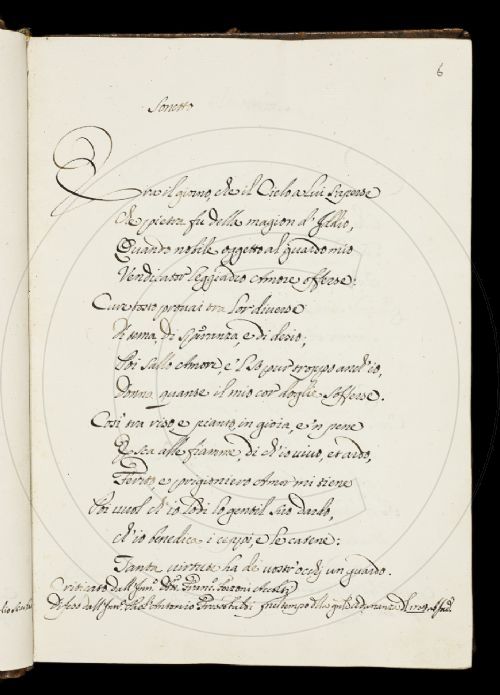 6
Sonetto
Era il giorno, che il Cielo a lui s'aperse
Che pietra fu della magion d'Iddio,
Quando nobile oggetto al guardo mio
Vendicator leggiadro Amore offerse:
Cure tosto provai tra lor diverse
Di tema, di Speranza, e di desio;
Poi sallo Amore, e'l so pur troppo anch'io,
Donna, quante il mio cor doglie sofferse.
Così tra riso, e pianto, in gioia, e 'n pene
Esca alle fiamme, di ch'io vivo, et ardo,
Ferito, e prigioniero Amor mi tiene
Poi vuol ch'io lodi lo gentil suo dardo,
ch'io benedica i ceppi, e le catene:
Tanta virtute ha de vostr'occhj un guardo.
Criticato dall'
Difeso dall' Antonio nel tempo della